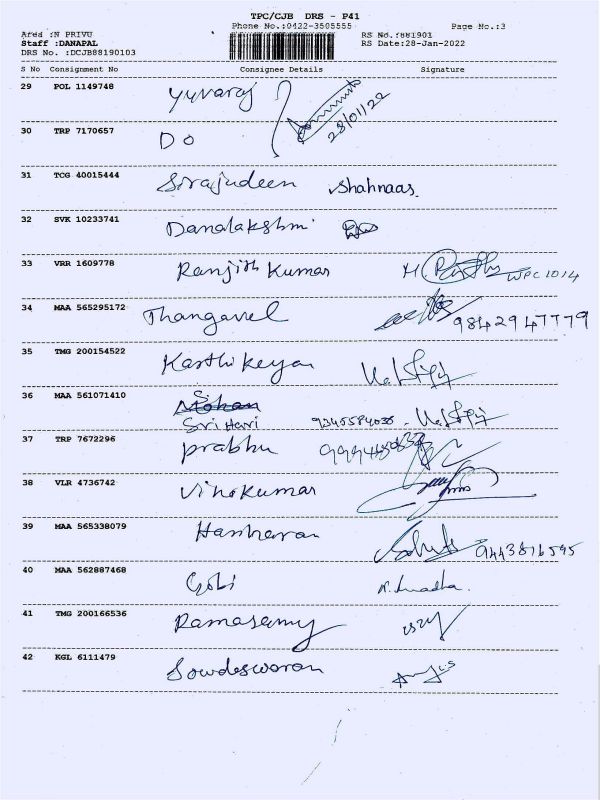 TPC/CJB DRS - P41
Phone No.:0422-3505555 Page No.:3
Area :N PRIVU RS No.:881901
Staff :DANAPAL RS Date:28-Jan-2022
DRS No. :DCJB88190103
S No Consignment No Consignee Details Signature
29 POL 1149748 Yuvaraj
28/01/22
30 TRP 7170657 Do
31 TCG 40015444 Sirajudeen Shahnaas
32 SVK 10233741 Danalakshmi
33 VRR 1609778 Ranjith Kumar WPC 1014
34 MAA 565295172 Thangavel 9842947779
35 TMG 200154522 Karthikeyan
36 MAA 561071410 Mohan
Sri Hari 9345584038
37 TRP 7672296 prabhu
38 VLR 4736742 Vinokumar
39 MAA 565338079 Hariharan
40 MAA 562887468 Gobi
41 TMG 200166536 Ramasamy
42 KGL 6111479 Sowdeswaran